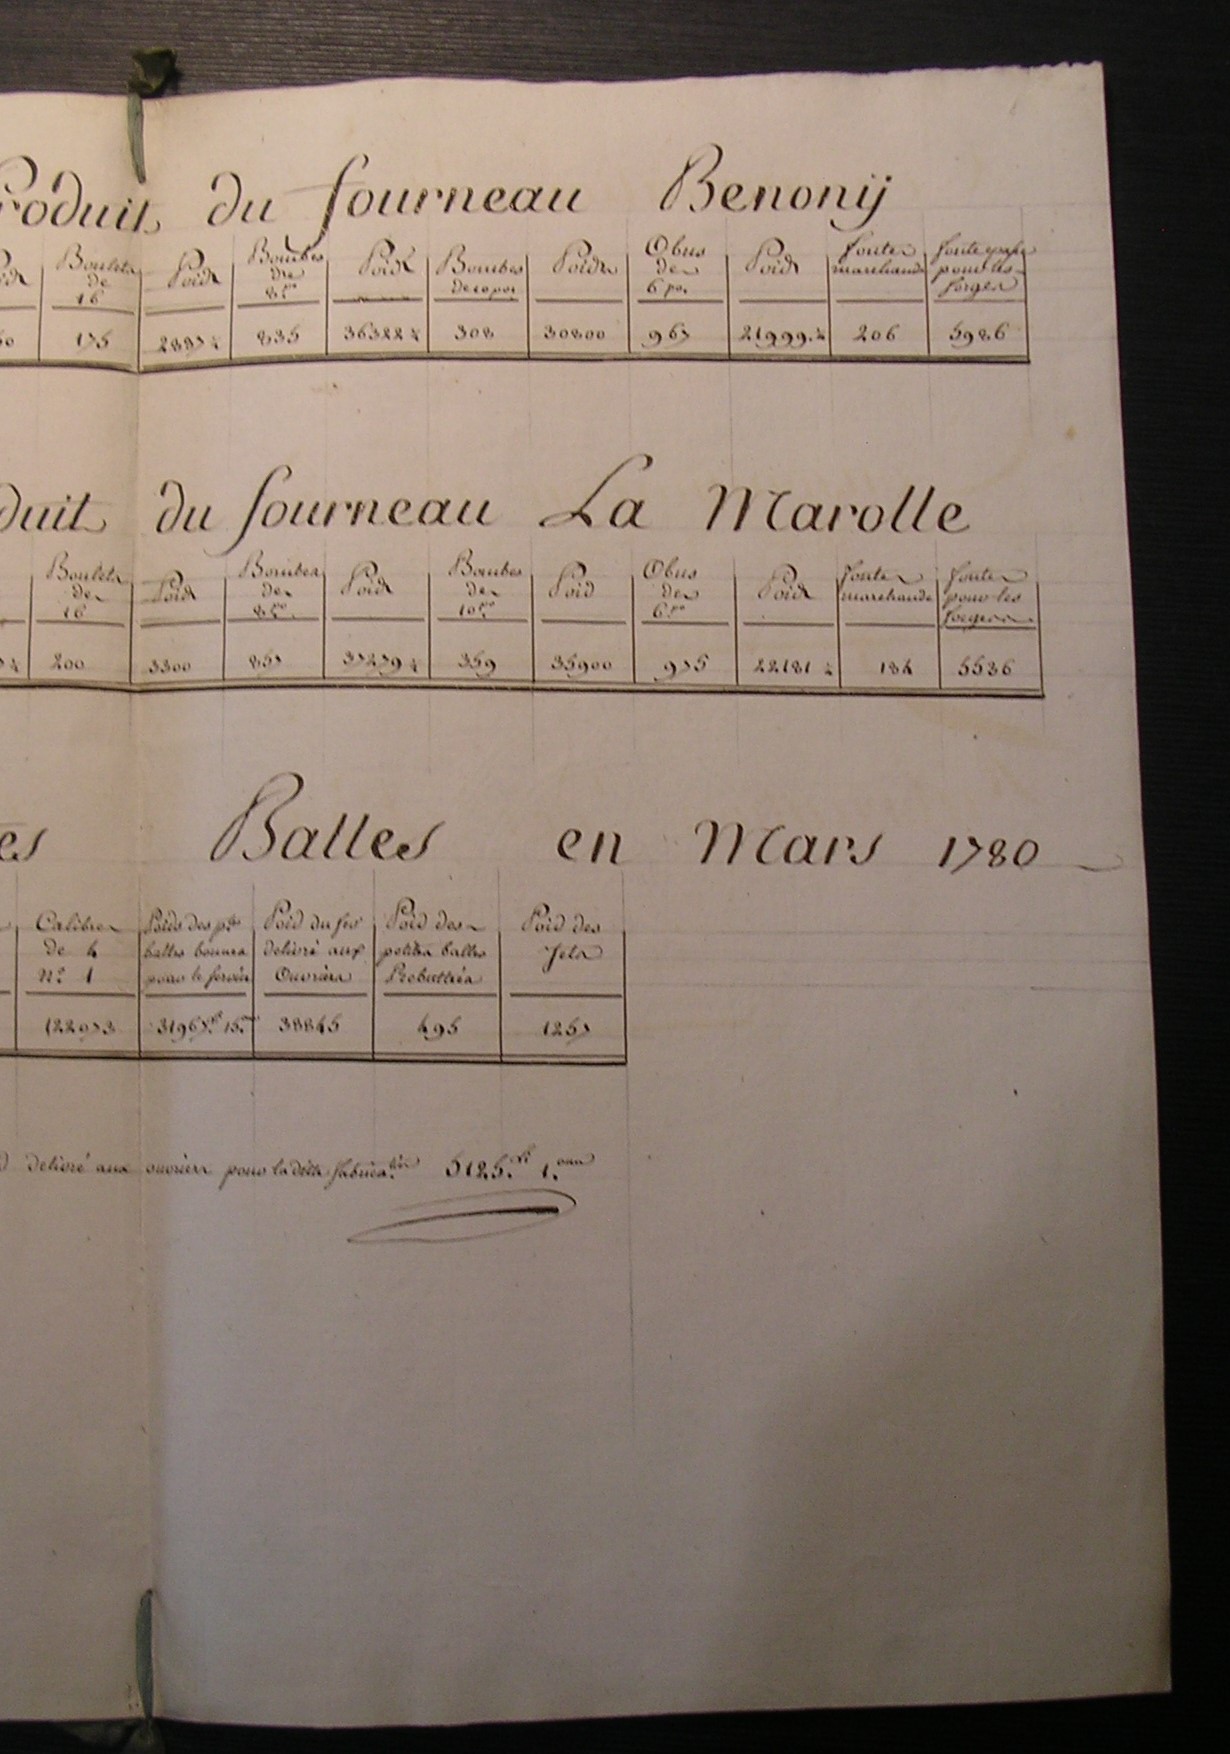 Produit du fourneau Benonij
Boulets de 16 Poids Bombes de 8 po Poids Bombes de 10 po Poids Obus de 6 po Poids fonte marchande fonte pour les forges
175 2887 ½ 835 36322 ½ 308 30800 967 21999 ¼ 206 5986
duit du fourneau La Marolle
Boulets de 16 Poids Bombes de 8 po Poids Bombes de 10 po Poid Obus de 6 po Poids fonte marchande fonte pour les forges
200 3300 857 37279 ½ 359 35900 975 22181 ¼ 184 5536
es Balles en Mars 1780
Calibre de 4 n.° 1 Poids des p.tes balles bonnes pour le service Poid du fer delivré aux Ouvriers Poid des petites balles Rebuttées Poid des Jets
122073 31967 lt 15 on 38845 495 1257
delivré aux ouvriers pour la ditte fabrica.tion 5125 lt 1. once